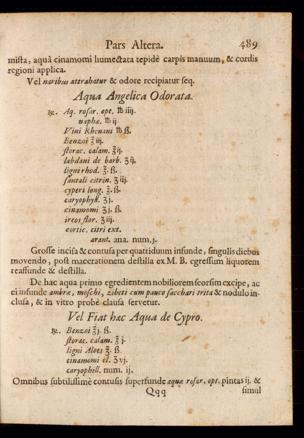 Pars Altera. 489
mista, aquâ cinamomi humectata tepidè carpis manuum, & cordis
regioni applica.
Vel naribus attrahatur & odore recipiatur seq.
Aqua Angelica Odorata.
℞. Aq. rosar. opt. ℔ iiij.
naphæ. ℔ ij.
Vini Rhenani ℔ ß.
Benzoi ℥ iij.
storac. calam. ℥ ij.
labdani de barb. ʒ ij.
ligni rhod. ℥. ß.
santali citrin. ʒ iij.
cyperi long. ℥. ß.
caryophyll. ʒ j.
cinamomi ʒ j. ß.
ireos flor. ℥ iij.
cortic. citri ext.
arant. ana. num. j.
Grosse incisa & contusa per quatriduum infunde, singulis diebus
movendo, post macerationem destilla ex M. B. egressum liquorem
reaffunde & destilla.
De hac aqua primo egredientem nobiliorem seorsim excipe, ac
ei infunde ambræ, moschi, zibeti cum pauco sacchari trita & nodulo in-
clusa, & in vitro probè clausa servetur.
Vel Fiat hac Aqua de Cypro.
℞. Benzoi ℥ j. ß.
storac. calam. ℥ j.
ligni Aloes ℥. ß.
cinamomi el. ʒ vj.
caryophill. num. ij.
Omnibus subtilissimè contusis superfunde aquæ rosar. opt. pintas ij. &
Qqq simul